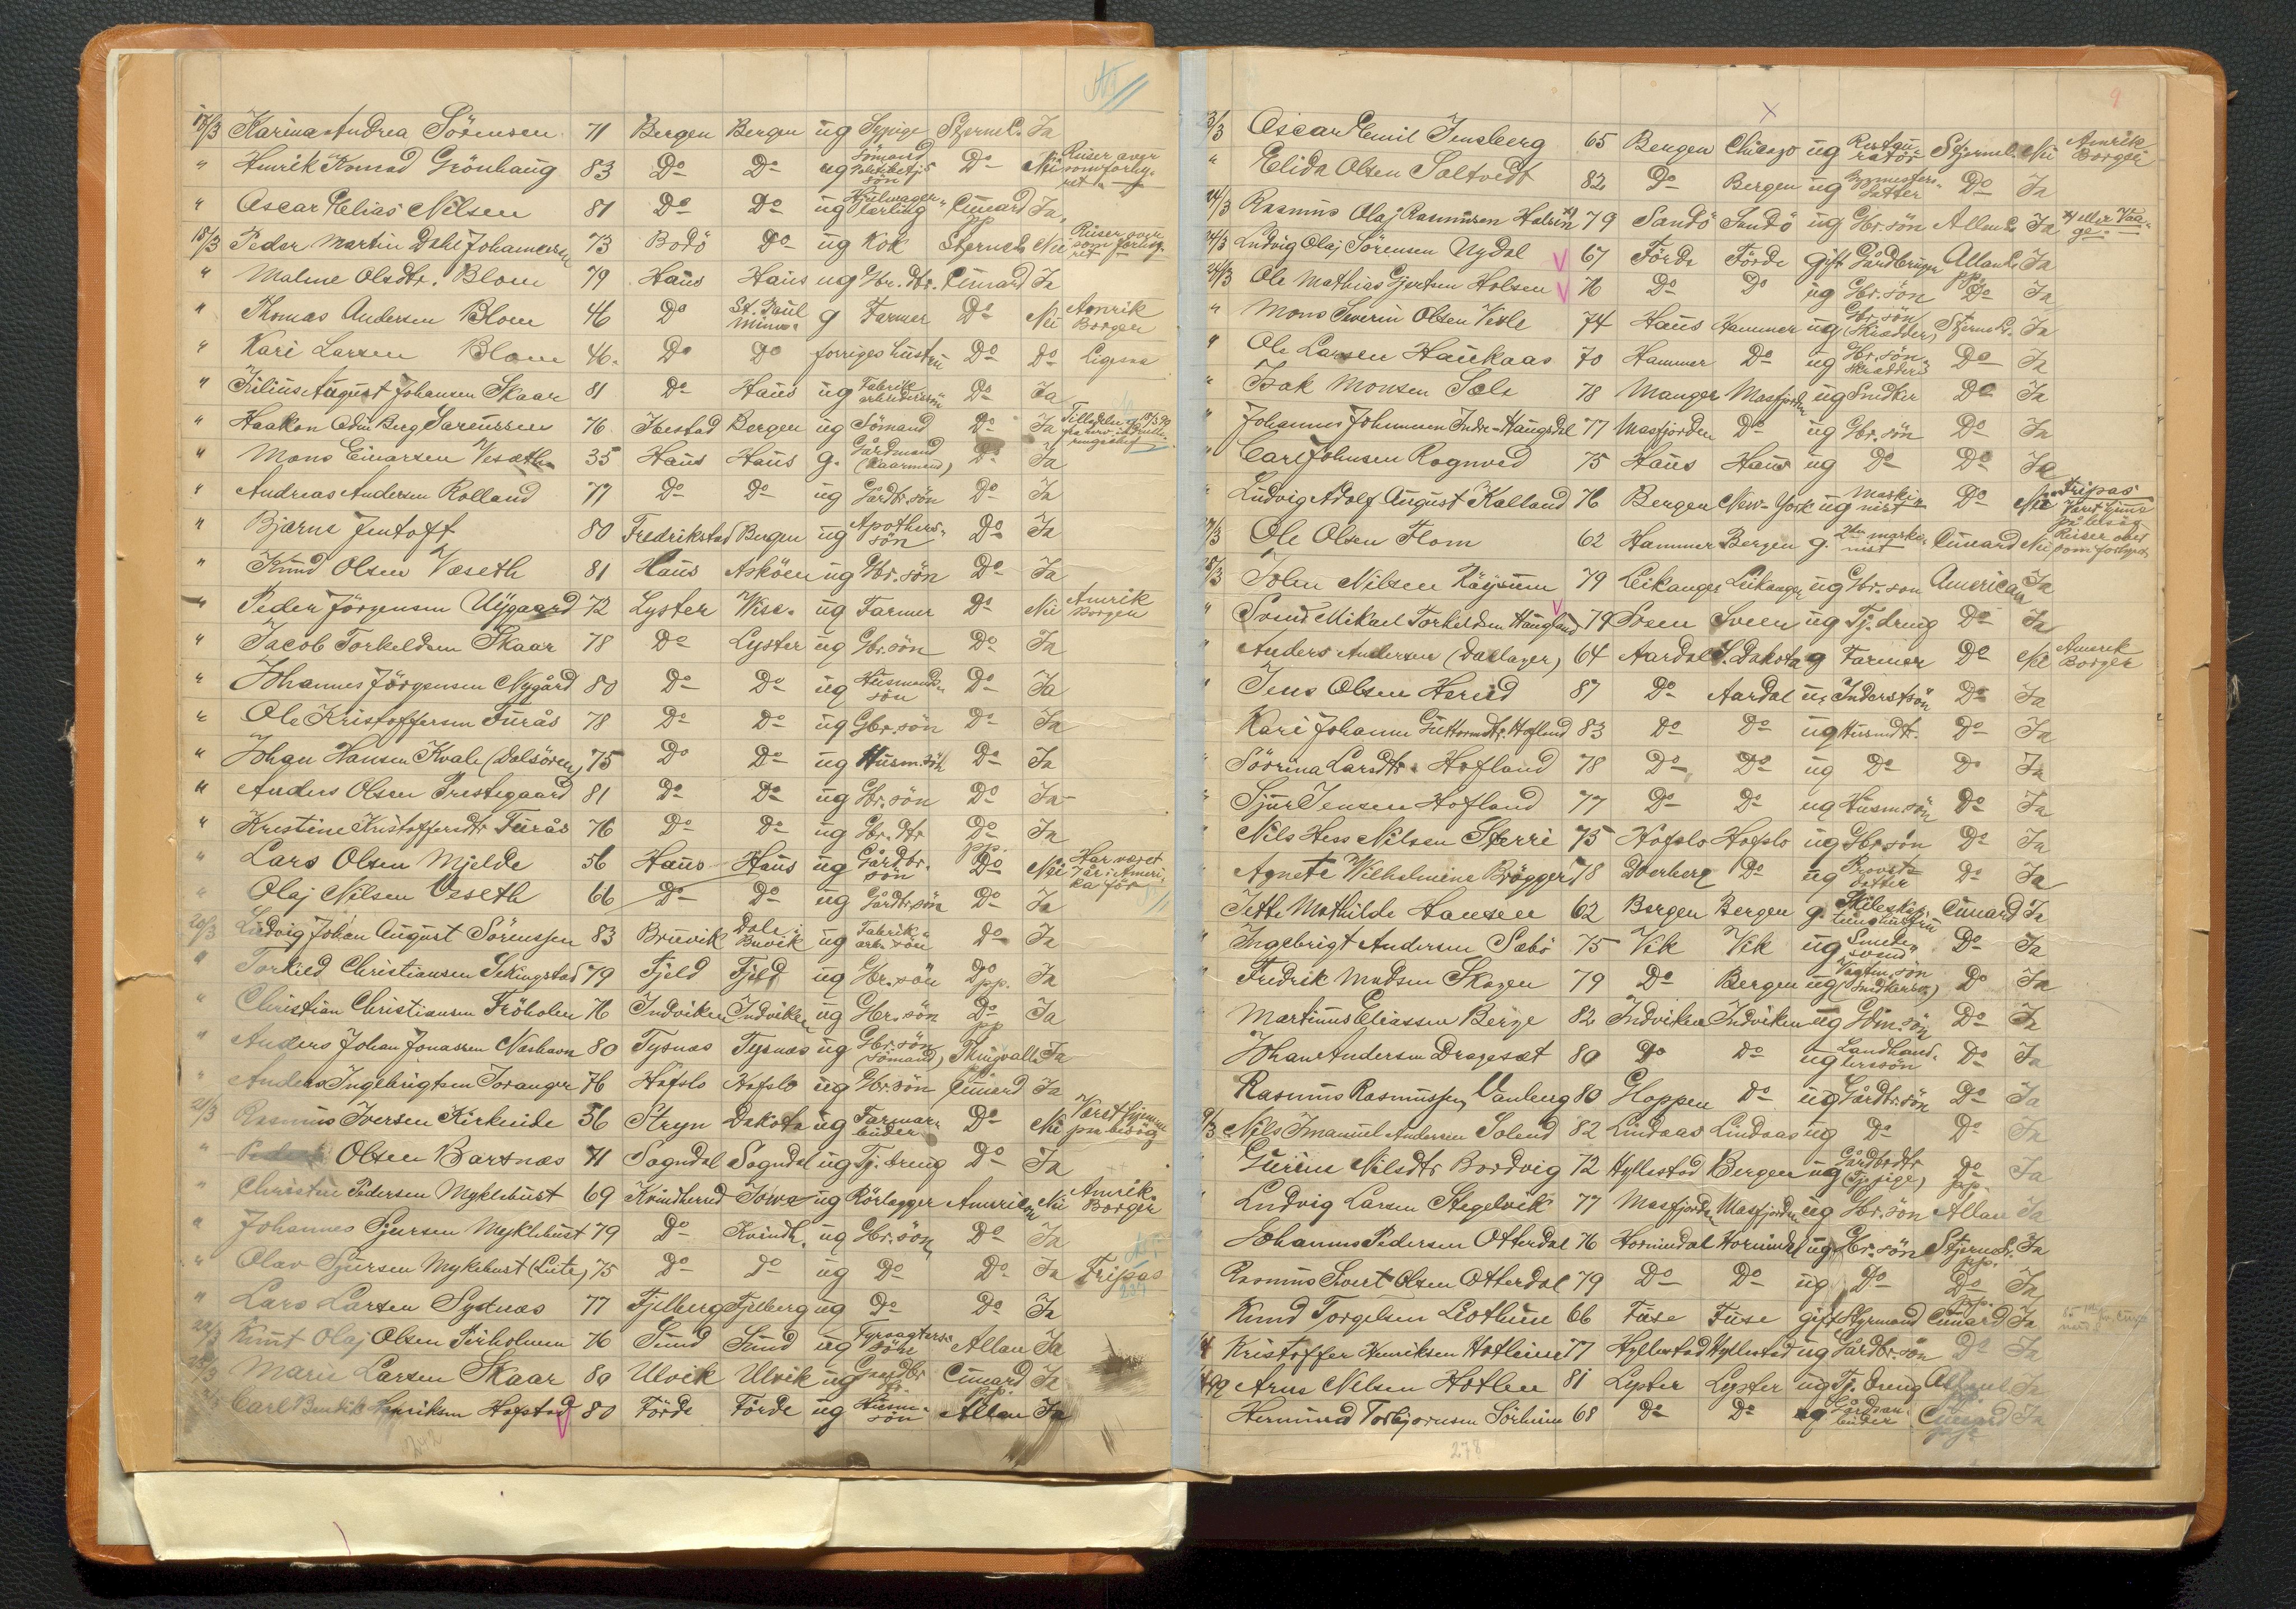 17/3 Karina Andrea Sörensen 71 Bergen Bergen ug Sypige Stjernel. Ja
" Henrik Konrad Grönhaug 83 Do Do ug Sömand Do Nei Reiser over som forhy- ret
" Oscar Elias Nilsen 81 Do Do ug lærling Cunard pp. Ja
18/3 Peder Martin Dahl Johannesen 73 Bodö Do ug Kok Stjernel. Nei Reiser over som forhy- ret
" Malene Olsdtr. Blom 79 Haus Haus ug Gbr. dtr. Cunard Ja
" Thomas Andersen Blom 46 Do St. Paul Minn. g Farmer Do Nei Amrik Borger
" Kari Larsen Blom 46. Do Do forriges hustru Do Do Ligesaa
" Julius August Johansen Skaar 81 Do Haus ug Fabrik arbeidersön Do Ja
" Haakon Odin Berg Sarenssen 76 Ibestad Bergen ug Sömand Do Ja
" Mons Einarsen Veseth 35 Haus Haus g. Gårdmand (Kaarmand) Do Ja
" Andreas Andersen Rolland 77 Do Do ug Gårdbr. sön Do Ja
" Bjarne Jentoft 80 Fredrikstad Bergen ug Apothekers- sön Do Ja
" Knud Olsen Væseth 81 Haus Asköen ug Gbr. sön Do Ja
" Peder Jörgensen Nygaard 72 Lyster Wisc. ug Farmer Do Nei Amrik Borger
" Jacob Torkeldsen Skaar 78 Do Lyster ug Gbr. sön Do Ja
" Johannes Jörgensen Nygård 80 Do Do ug Husmands- sön Do Ja
" Ole Kristoffersen Furås 78 Do Do ug Gbr. sön Do Ja
" Johan Hansen Kvale (Dalsören) 75 Do Do ug Husm. sön Do Ja
" Anders Olsen Prestegaard 81 Do Do ug Gbr. sön Do Ja
" Kristine Kristoffersdtr Furås 76 Do Do ug Gbr. dtr Do pp. Ja
" Lars Olsen Mjelde 56 Haus Haus ug Gårdbr. sön Do Nei Har været 7 år i Ameri- ka för
" Olaj Nilsen Veseth 66 Do Do ug Gårdbr. sön Do Ja
20/3 Ludvig Johan August Sörenssen 83 Bruvik Dale i Bruvik ug Fabrik- arb. sön Do Ja
" Torkild Christiansen Sekingstad 79 Fjeld Fjeld ug Gbr. sön Do pp. Ja
" Christian Christiansen Fröholm 76 Indviken Indviken ug Gbr. sön Do pp Ja
" Anders Johan Jonassen Neshavn 80 Tysnæs Tysnæs ug Gbr. sön (sömand) Thingvalla Ja
" Anders Ingebrigtsen Joranger 76 Hafslo Hafslo ug Gbr. sön Cunard Ja
21/3 Rasmus Iversen Kirkeeide 56 Stryn Dakota ug Farmar- beider Do Nei Været hjemme paa besög
" Olsen Barsnæs 71 Sogndal Sogndal ug Tj. dreng Do Ja
" Christen Pedersen Myklebust 69 Kvindherred Iowa ug Rörlægger American Nei Amrik. Borger
" Johannes Sjursen Myklebust 79 Do Kvindh. ug Gbr. sön Do Ja
" Olav Sjursen Myklebust (Lute) 75 Do Do ug Do Do Ja Fripas
" Lars Larsen Sydnæs 77 Fjelberg Fjelberg ug Do Do Ja
22/3 Knut Olaj Olsen Pirholmen 76 Sund Sund ug Fyrvogters- söhn Allan Ja
23/3 Marie Larsen Skaar 80 Ulvik Ulvik ug Gaardbr dtr. Cunard pp. Ja
Carl Bendik Henriksen Hofstad 80 Förde Förde ug Husm- sön Allan Ja
242
9
23/3 Oscar Emil Jensberg 65 Bergen Chicago ug Restau- ratör Stjernel. Nei Amrik. Borger
" Elida Olsen Saltvedt 82 Do Bergen ug datter Do Ja
24/3 Rasmus Olaj Rasmussen Halsen 79 Sandö Sandö ug Gbr. sön Allanl. Ja x) eller Vaa- ge.
24/3 Ludvig Olaj Sörensen Nydal 67 Förde Förde gift Gårdbruger Allanl. pp. Ja
24/3 Ole Mathias Gjertsen Holsen 76 Do Do ug Gbr. sön Do Ja
" Mons Severin Olsen Vesle 74 Haus Hammer ug Gbr. sön (Skrædder) Stjernel. Ja
" Ole Larsen Haukaas 70 Hammer Do ug Gbr. sön Skrædder Do Ja
" Isak Monsen Sæle 78 Manger Masfjorden ug Snedker Do Ja
" Johannes Johannesen Indre-Haugsdal 77 Masfjorden Do ug Gbr. sön Do Ja
" Carl Johnsen Rognved 75 Haus Haus ug Do Do Ja
" Ludvig Adolf August Kalland 76 Bergen New-York ug Maski- nist Do Nei Fripas Været hjemme på besög
27/3 Ole Olsen Flom 62 Hammer Bergen g. 2den maski- nist Cunard Nei Reiser over som forhyret
28/3 John Nilsen Röysum 79 Leikanger Leikanger ug Gbr. sön American Ja
" Svend Mikael Torkildsen Haugland 79 Sveen Sveen ug Tj. dreng Do Ja
" Anders Andersen (Dællager) 64 Aardal S. Dakota g Farmer Do Nei Amerik Borger
" Jens Olsen Hereid 87 Do Aardal u. Inderstsön Do Ja
Kari Johanne Guttormsdtr. Hofland 83 Do Do ug Husmdtr. Do Ja
" Sörrina Larsdtr. Hofland 78 Do Do ug Do Do Ja
" Sjur Jensen Hofland 77 Do Do ug Husmsön Do Ja
" Nils Hess Nilsen Sterri 75 Hafslo Hafslo ug Gbr. sön Do Ja
" Agnete Wilhelmine Brögger 78 Do ug Provste- datter Do Ja
" Jette Mathilde Hansen 62 Bergen Bergen g. Cunard Ja
" Ingebrigt Andersen Sæbö 75 Vik Vik ug Smede- svend Do Ja
" Fredrik Madsen Skagen 79 Do Bergen ug (Snedkersv.) Do Ja
" Martinus Eliassen Berge 82 Indviken Indviken ug Gbm. sön Do Ja
Johan Andersen Dragesæt 80 Do Do ug Landhand- lerssön Do Ja
Rasmus Rasmussen Vanberg 80 Gloppen Do ug Gårdbr. sön Do Ja
Nils Imanuel Andersen Solend 82 Lindaas Lindaas ug Do Do Ja
" Gurine Nilsdtr Bordvig 72 Hyllestad Bergen ug Gårdbrdtr (Tj. pige) Do pp. Ja
" Ludvig Larsen Stegelvik 77 Masfjorden Masfjorden ug Gbr. sön Allan Ja
Johannes Pedersen Otterdal 76 Hornindal Hornindal ug Gbr. sön Stjernel. pp. Ja
Rasmus Sivert Olsen Otterdal 79 Do Do ug Do Do pp. Ja
Knud Torgelsen Liothun 66 Fuse Fuse gift Styrmand Cunard Ja
Kristoffer Henriksen Hotleine 77 Hyllestad Hyllestad ug Gårdbr. sön Do Ja
Arne Nilsen Hotlen 81 Lyster Lyster ug Tj. dreng Ja
Hermund Torbjornsen Sörheim 68 Do Do ug Gårdsar- beider Cunard pp. Ja
278